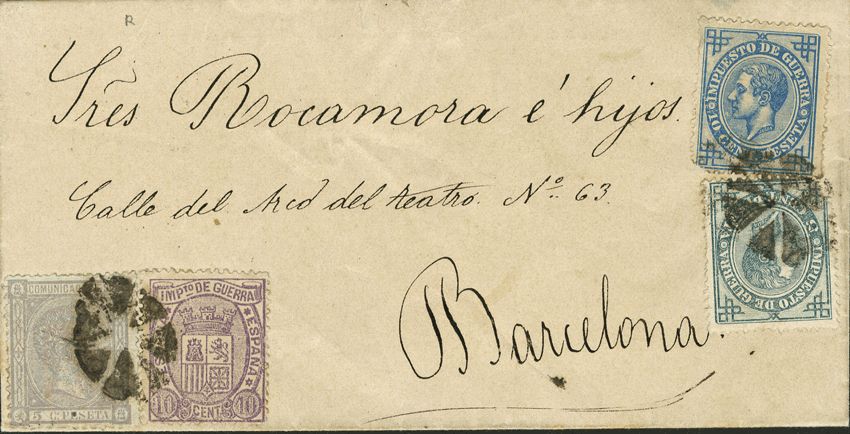 R
Sres Rocamora é hijos.
Calle del Arco del teatro. Nº 63.
Barcelona.
IMPUESTO DE GUERRA
10 CENT PESETA
IMPUESTO DE GUERRA
COMUNICA
5 C. PESETA
IMPTO DE GUERRA
ESPAÑA
10 CENT. 10